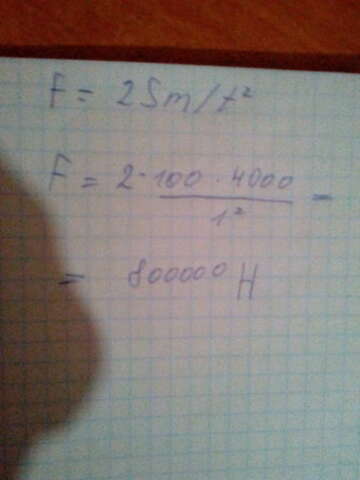 F = 2Sm/t²
F = 2·100·4000 / 1² =
= 800000 H